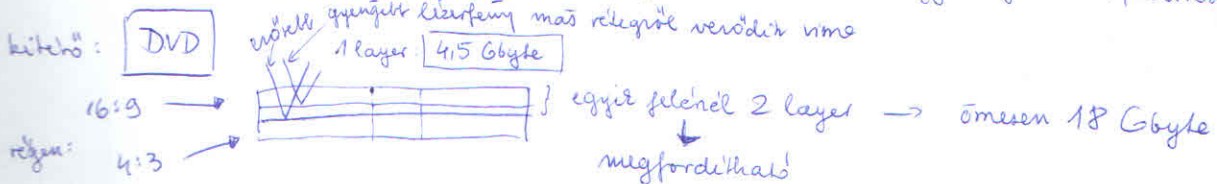 kitérő: DVD
erősebb gyengébb lézerfény más rétegről verődik vissza
1 layer 4,5 Gbyte
16:9 → } egyik felénél 2 layer → összesen 18 Gbyte
régen: 4:3 → megfordítható